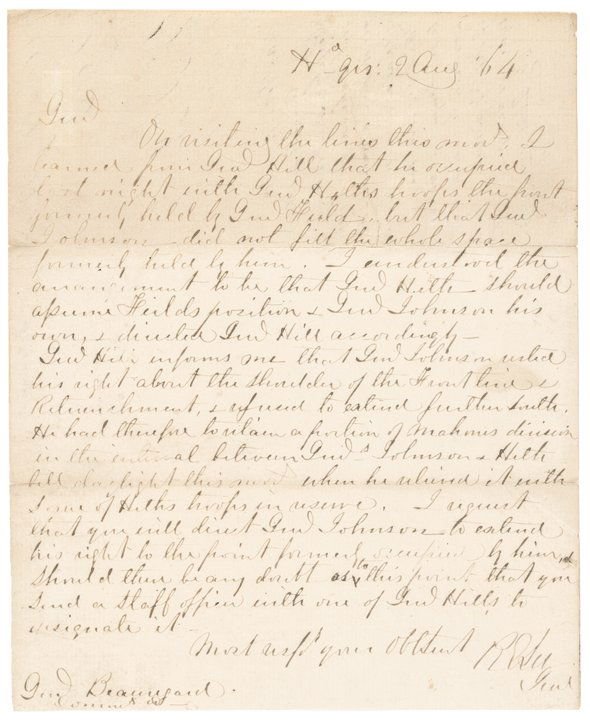 Hd qrs: 2 Aug '64
Genl
On visiting the lines this morg, I
learned from Genl Hill that he occupied
last night with Genl Heths troops the point
formerly held by Genl Field, but that Genl
Johnson did not fill the whole space
formerly held by him. I understood the
arrangement to be that Genl Heth should
assume Feilds position & Genl Johnson his
own, & directed Genl Hill accordingly—
Genl Hill informs me that Genl Johnson rested
his right about the shoulder of the Front line &
Retrenchment, & refused to extend further south.
He had therefore to retain a portion of Mahones division
in the interval between Genls Johnson & Heth
till daylight this morg when he relieved it with
some of Heths troops in reserve. I request
that you will direct Genl Johnson to extend
his right to the point formerly occupied by him, &
should there be any doubt as to this point, that you
send a staff officer with one of Genl Hills, to
designate it—
Most respy your Obt Servt
R E Lee
Genl
Genl Beauregard.
Commd &c—